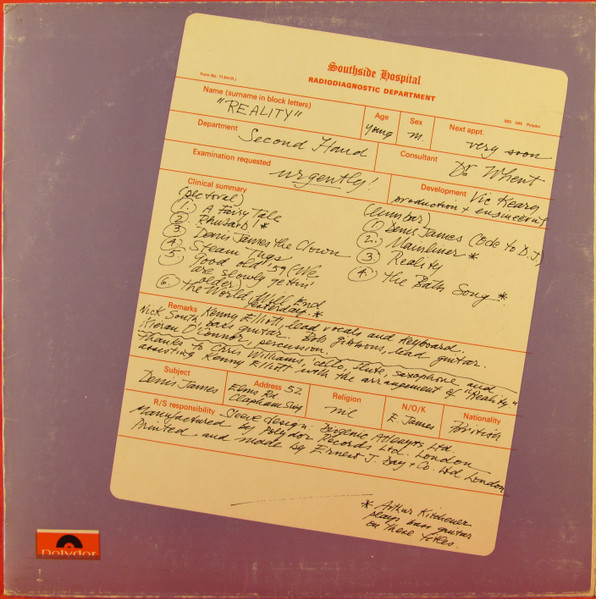 Southside Hospital
RADIODIAGNOSTIC DEPARTMENT
Name (surname in block letters)
"REALITY"
Age
Young
Sex
m.
Next appt.
very soon
Department
Second Hand
Consultant
Dr Whent
Examination requested
urgently!
Development Vic Keary
production + engineering
Clinical summary
(pectoral)
1. A Fairy Tale
2 Rhubarb! *
3 Denis James the Clown
4. Steam Tugs
5 Good old '59 (We
are slowly gettin'
older)
6. The World Will End
Yesterday. *
(lumbar)
1) Denis James (Ode to D.J)
2. Mainliner *
3 Reality
4. The Bath Song *
Remarks Kenny Elliott, lead vocals and keyboard.
Nick South, bass guitar. Bob Gibbons, lead guitar.
Kieran O'Connor, percussion.
Thanks to Chris Williams, cello, flute, saxophone and
assisting Kenny Elliott with the arrangement of "Reality."
Subject
Denis James
Address 52
Elms Rd
Clapham
Religion
nil
N/O/K
E. James
Nationality
British
R/S responsibility Sleeve design:
Manufactured by Polydor Records Ltd. London
Printed and made by Ernest J. Day + Co. Ltd London
* Arthur Kitchener
plays bass guitar
on these titles.
Polydor